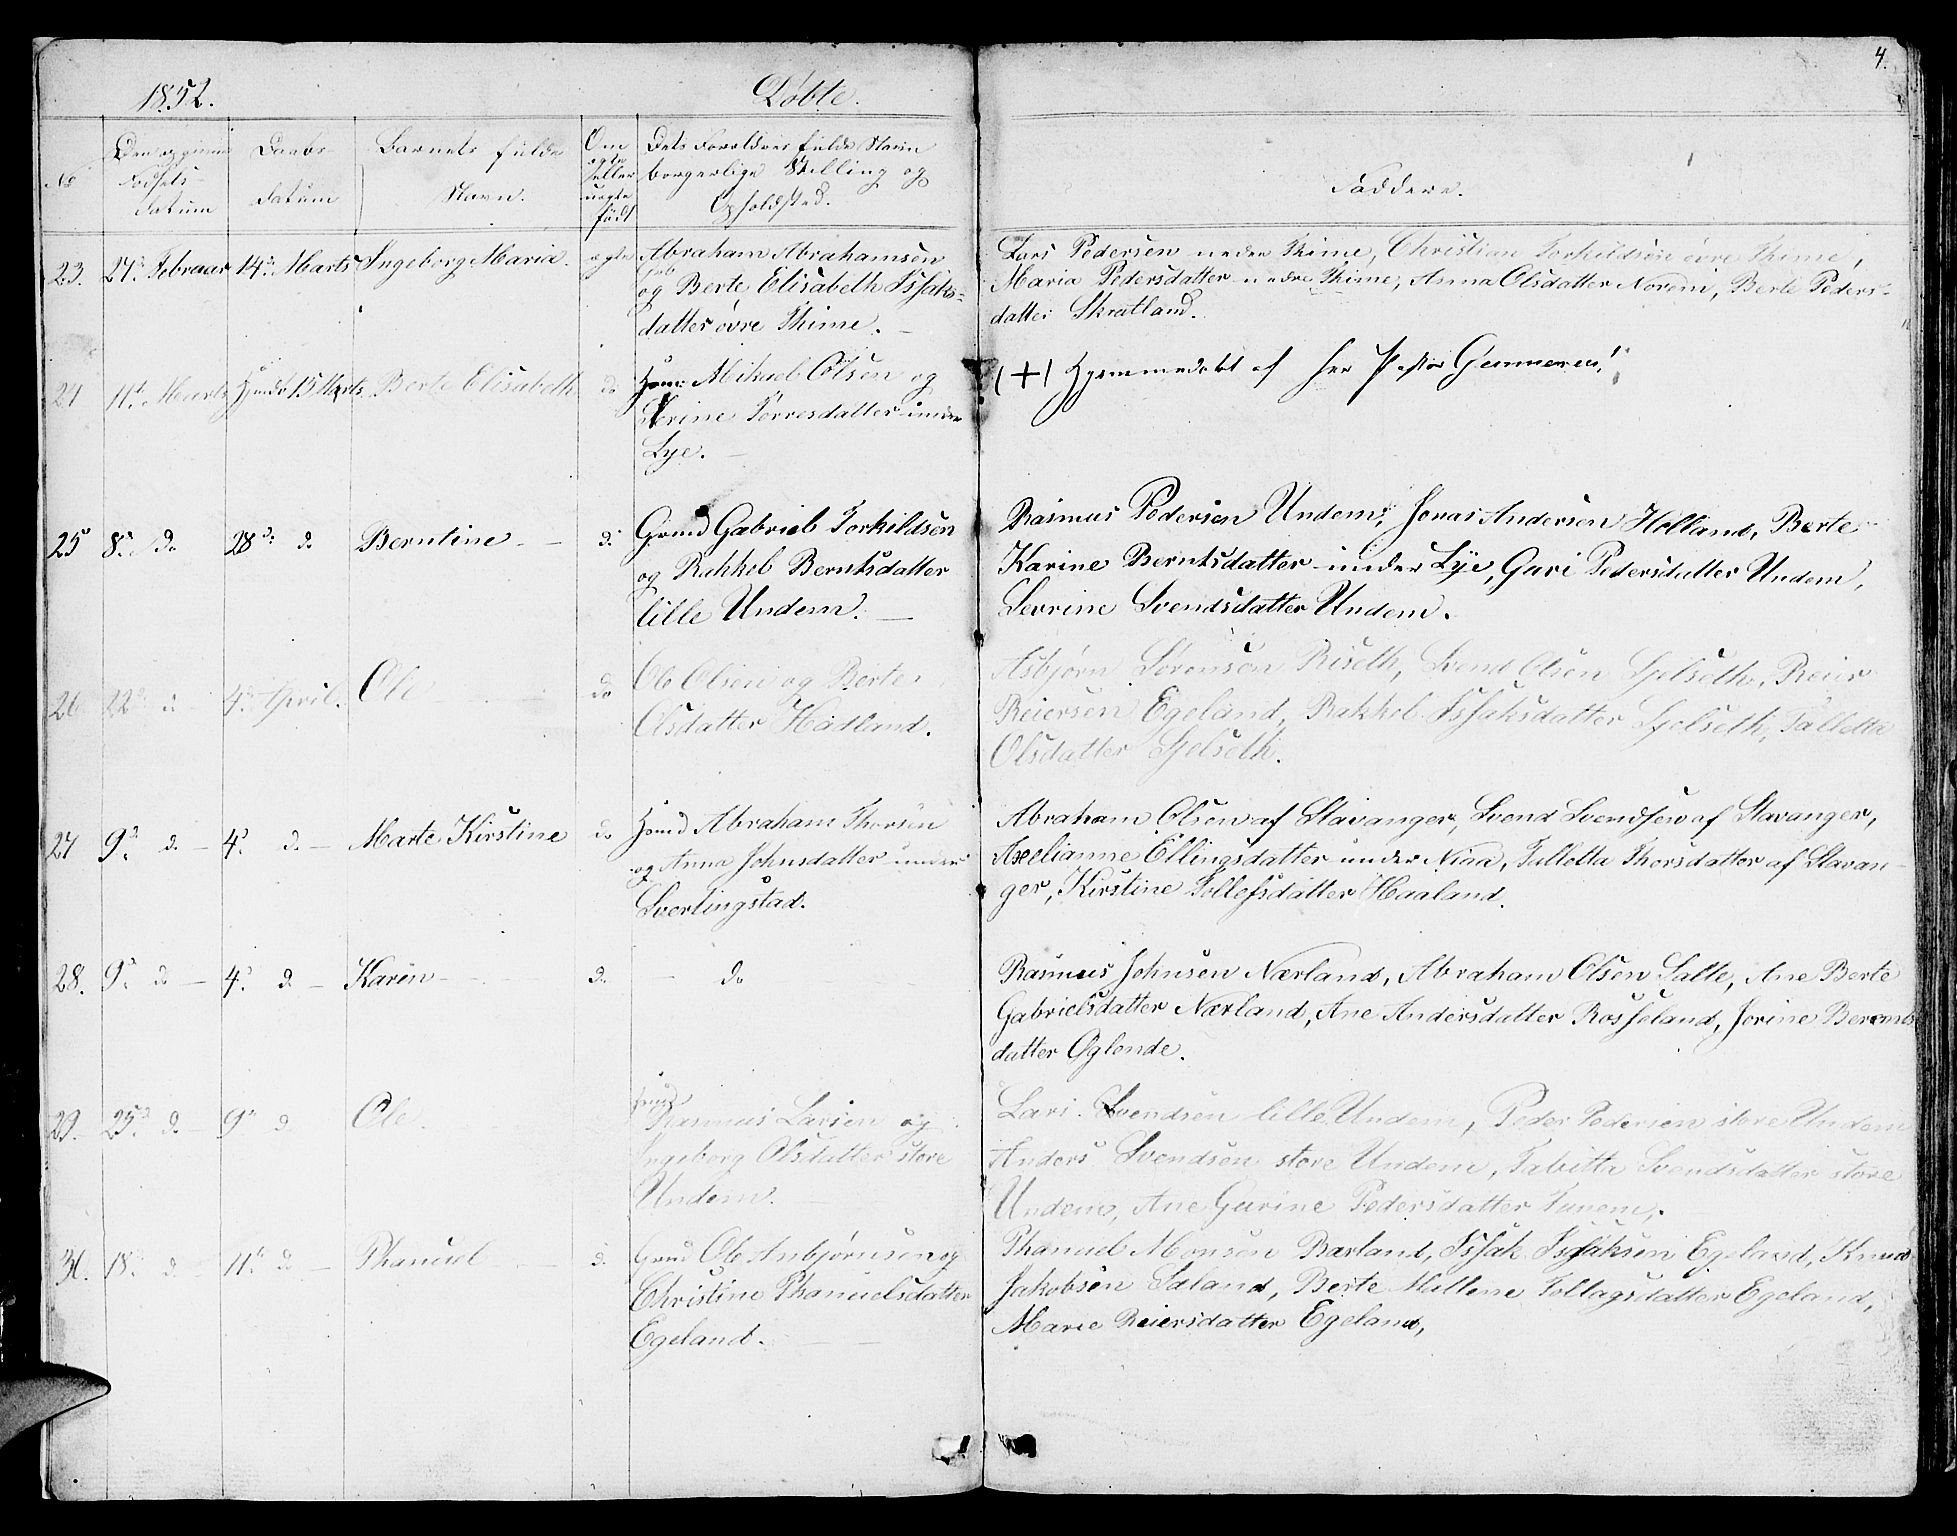 4.
1852. Døbte.
No
Datum
Daabs
Datum
Barnets fulde
Navn.
Om
ægte
eller
uægte
født
Dets Forældres fulde Navn
borgerlige Stilling og
Opholdsted.
Faddere.
23. 27d. Februar 14d. Marts Ingeborg Maria. ægte Abraham Abrahamsen
og Berte Elisabeth Issaks-
datter øvre Thime. -
Lars Pedersen nedre Thime, Christian Torkildsøn øvre Thime,
Maria Pedersdatter nedre Thime, Anna Olsdatter Norem, Berte Peders-
datter Skratland.
24 11d. Marts Hjemdøbt 15 Marts Berte Elisabeth do Mikael Olsen og
Serine Torresdatter under
Lye. -
(+) Hjemmedøbt af Her Pastor
25 8d. do 28d. do Berntine - - do Grmd Gabriel Torkildsen
og Rakkel Berntsdatter
lille Undem. -
Rasmus Pedersen Undem, Jonas Andersen Holland, Berte
Karine Berntsdatter under Lye, Guri Pedersdatter Undem,
Sevrine Svendsdatter Undem.
26 22d. do 4d. April. Ole do Ole Olsen og Berte
Olsdatter Hadland.
Asbjørn Sørensen Riseth, Svend Olsen Sjelseth, Reier
Reiersen Egeland, Rakkel Issaksdatter Sjelseth, Talletta
Olsdatter Sjelseth.
27 9d. do - 4d. do - Marte Kirstine do Hsmd Abraham Thorsen
og Anna Johnsdatter under
Sverlingstad.
Abraham Olsen af Stavanger, Svend Svendsen af Stavanger,
Axelianne Ellingsdatter under Niaa, Talletta Thorsdatter af Stavan-
ger, Kirstine Tollefsdatter Haaland.
28. 9d. do - 4d. do - Karen - - do - do
Rasmus Johnsen Nærland, Abraham Olsen Salte, Ane Berte
Gabrielsdatter Nærland, Ane Andersdatter Rosseland, Jorine Berents
datter Øglende.
29. 25d. do - 9d. do Ole. Rasmus Larsen og
Ingeborg Olsdatter store
Undem.
Lars Svendsen lille Undem, Peder Pedersen store Undem
Anders Svendsen store Undem, Tabitta Svendsdatter store
Undem, Ane Gurine Pedersdatter Tunem,
30. 18d. do - 11d. do - Phanuel - do Grmd Ole Asbjørnsen og
Christine Phanuelsdatter
Egeland. -
Phanuel Monsen Barland, Issak Issaksen Egeland, Knud
Jakobsen Saland, Berte Mallene Tollagsdatter Egeland,
Marie Reiersdatter Egeland,